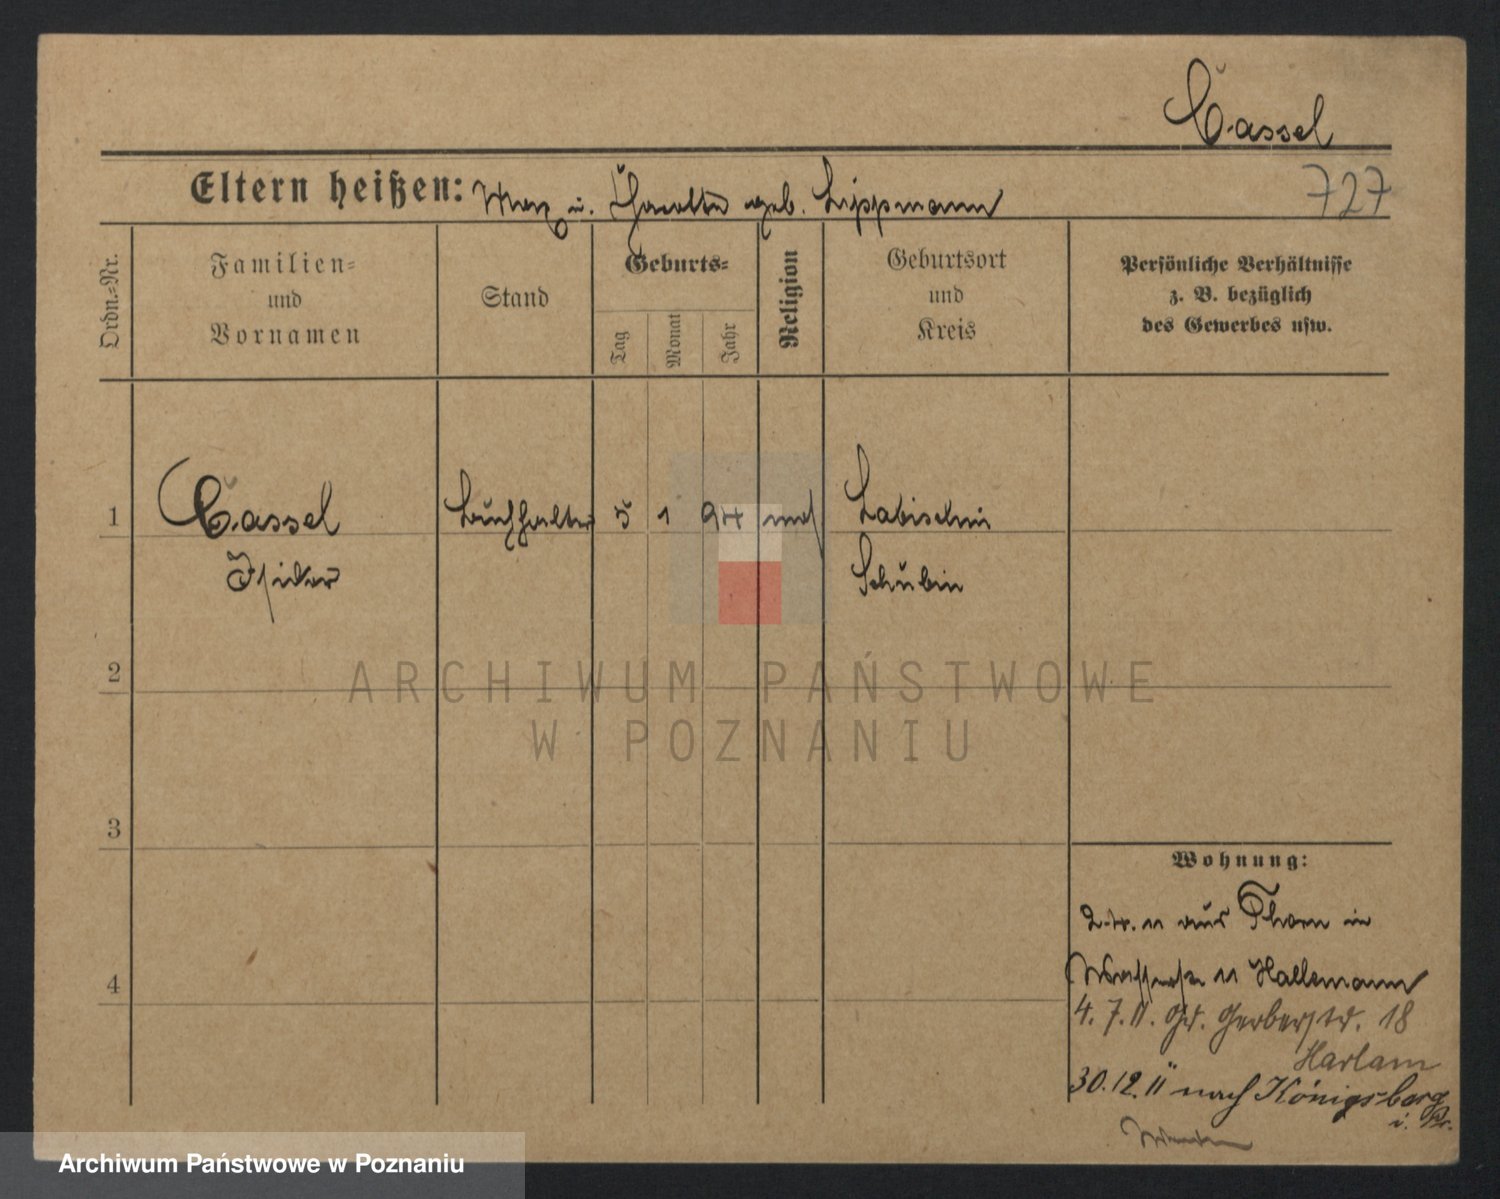 Cassel
Eltern heißen: Max u. geb. Lippmann
727
Ordn.-Nr.
Familien-
und
Vornamen
Stand
Geburts-
Tag
Monat
Jahr
Religion
Geburtsort
und
Kreis
Persönliche Verhältnisse
z. B. bezüglich
des Gewerbes usw.
1
Cassel
Buchhalter
5
1
94
mos
Labischin
Isidor
Schubin
2
ARCHIWUM PAŃSTWOWE
W POZNANIU
3
4
Wohnung:
2.4.11 aus Thorn in
11 Hallemann
4.7.11. Gr. Gerberstr. 18
Harlam
30.12.11 nach Königsberg
i. Pr.
Archiwum Państwowe w Poznaniu